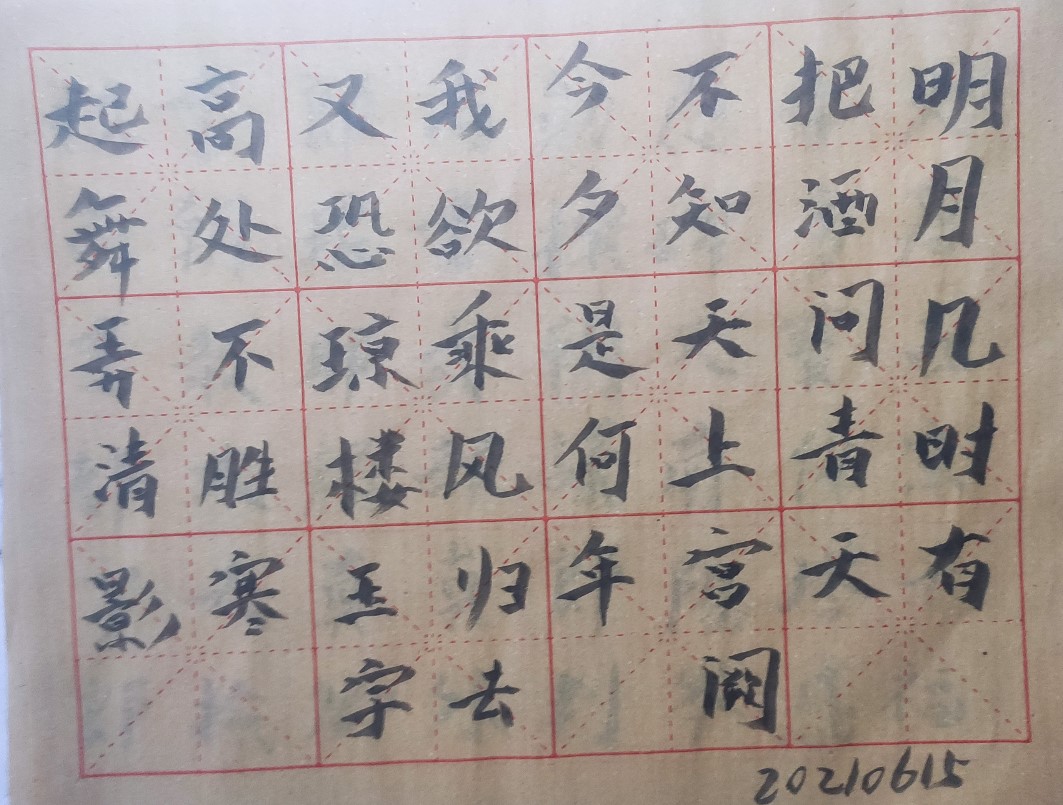 明月几时有
把酒问青天
不知天上宫阙
今夕是何年
我欲乘风归去
又恐琼楼玉字
高处不胜寒
起舞弄清影
20210615